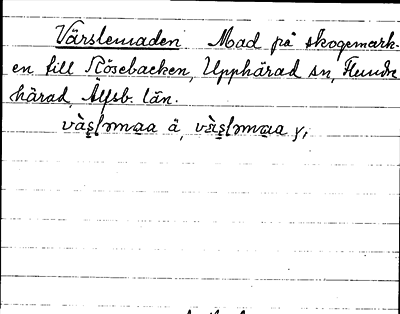 Värslemaden Mad på skogsmark-
en till Rösebacken, Upphärad sn, Flundre
härad, Älfsb. län.
vàs̥l̥maa ä, vàs̥l̥maa y,